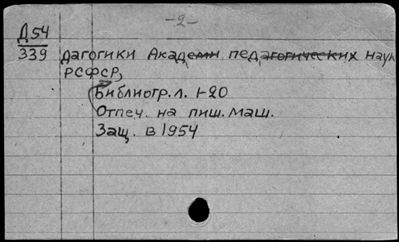 -2-
Д54
339
дагогики Академии педагогических наук
РСФСР,
Библиогр. л. 1-20
Отпеч. на пиш. маш.
Защ. в 1954